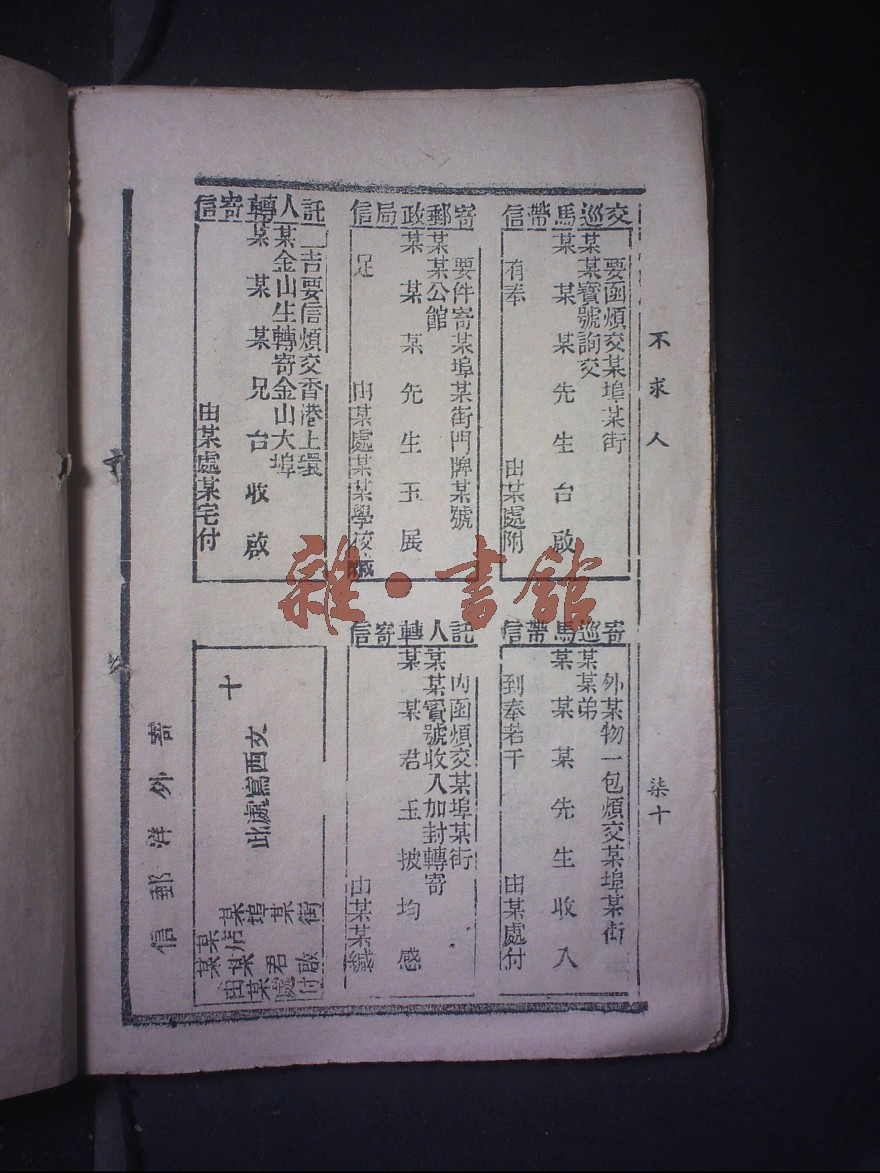 不求人
柒十
交巡馬帶信
要函煩交某埠某街
某某寶號詢交
某某某先生台啟
有奉
由某處附
寄郵政局信
要件寄某埠某街門牌某號
某某公館
某某某先生玉展
足
由某處某某學校緘
託人轉寄信
吉要信煩交香港上環
某金山生轉寄金山大埠
某某某兄台收啟
由某處某宅付
寄巡馬帶信
外某物一包煩交某埠某街
某某弟
某某某先生收入
到奉若干
由某處付
託人轉寄信
內函煩交某埠某街
某某寶號收入加封轉寄
某某君玉披均感
由某某緘
十
此處寫西文
某埠某街
某某店
某某君啟
由某處付
寄外洋郵信
雜·書館